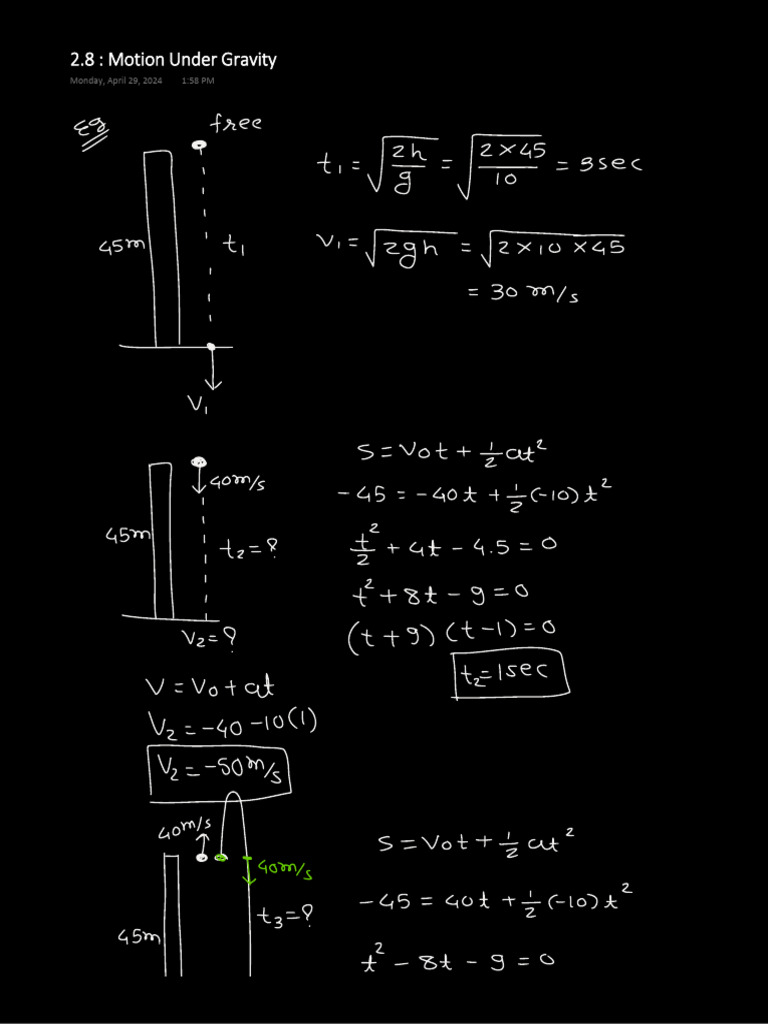 2.8 : Motion Under Gravity
Monday, April 29, 2024 1:58 PM
Eg
free
45m
t₁
V₁
t₁ = √(2h/g) = √(2×45/10) = 3sec
V₁ = √2gh = √2×10×45
= 30 m/s
40m/s
45m
t₂=?
V₂=?
S=Vot+½at²
-45=-40t+½(-10)t²
t²/2+4t-4.5=0
t²+8t-9=0
(t+9)(t-1)=0
t₂=1sec
V=Vo+at
V₂=-40-10(1)
V₂=-50m/s
40m/s
40m/s
45m
t₃=?
S=Vot+½at²
-45=40t+½(-10)t²
t²-8t-9=0